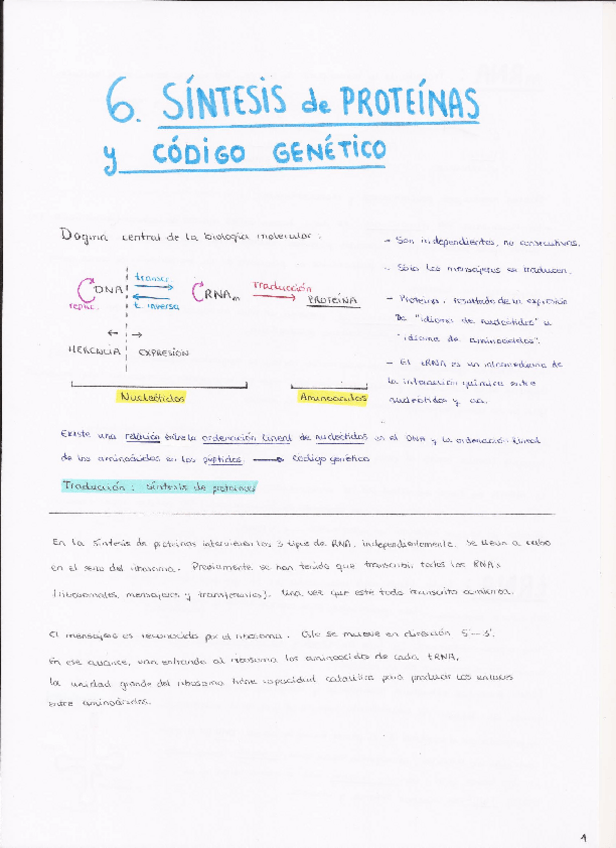 6. SÍNTESIS de PROTEÍNAS
y CÓDIGO GENÉTICO
Dogma central de la biología molecular:
DNA
transcr.
t. inversa
replic.
RNAm
Traducción
PROTEÍNA
HERENCIA
EXPRESIÓN
Nucleótidos
Aminoácidos
- Son independientes, no consecutivos.
- Sólo los mensajeros se traducen.
- Proteínas, resultado de la expresión
de "idioma de nucleótidos" a
"idioma de aminoácidos".
- El tRNA es un intermediario de
la interacción química entre
nucleótidos y aa.
Existe una relación entre la ordenación lineal de nucleótidos en el DNA y la ordenación lineal
de los aminoácidos en los péptidos. → Código genético
Traducción: síntesis de proteínas
En la síntesis de proteínas intervienen los 3 tipos de RNA, independientemente. Se llevan a cabo
en el seno del ribosoma. Previamente se han tenido que transcribir todos los RNAs
(ribosomales, mensajeros y transferentes). Una vez que este todo transcrito comienza.
El mensajero es reconocido por el ribosoma. Este se mueve en dirección 5'-3'.
En ese avance, van entrando al ribosoma los aminoácidos de cada tRNA,
la unidad grande del ribosoma tiene capacidad catalítica para producir los enlaces
entre aminoácidos.
1